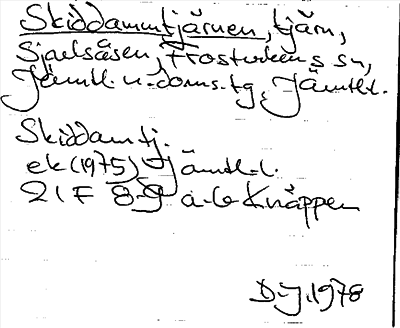 Skiddammtjärnen, tjärn,
Sjaelsåsen, Frostvikens sn,
Jämtl. n. doms.tg, Jämtl.l.
Skiddamtj.
ek (1975) Jämtl.l.
21F 8-9 a-b Knäppen
D-J. 1978